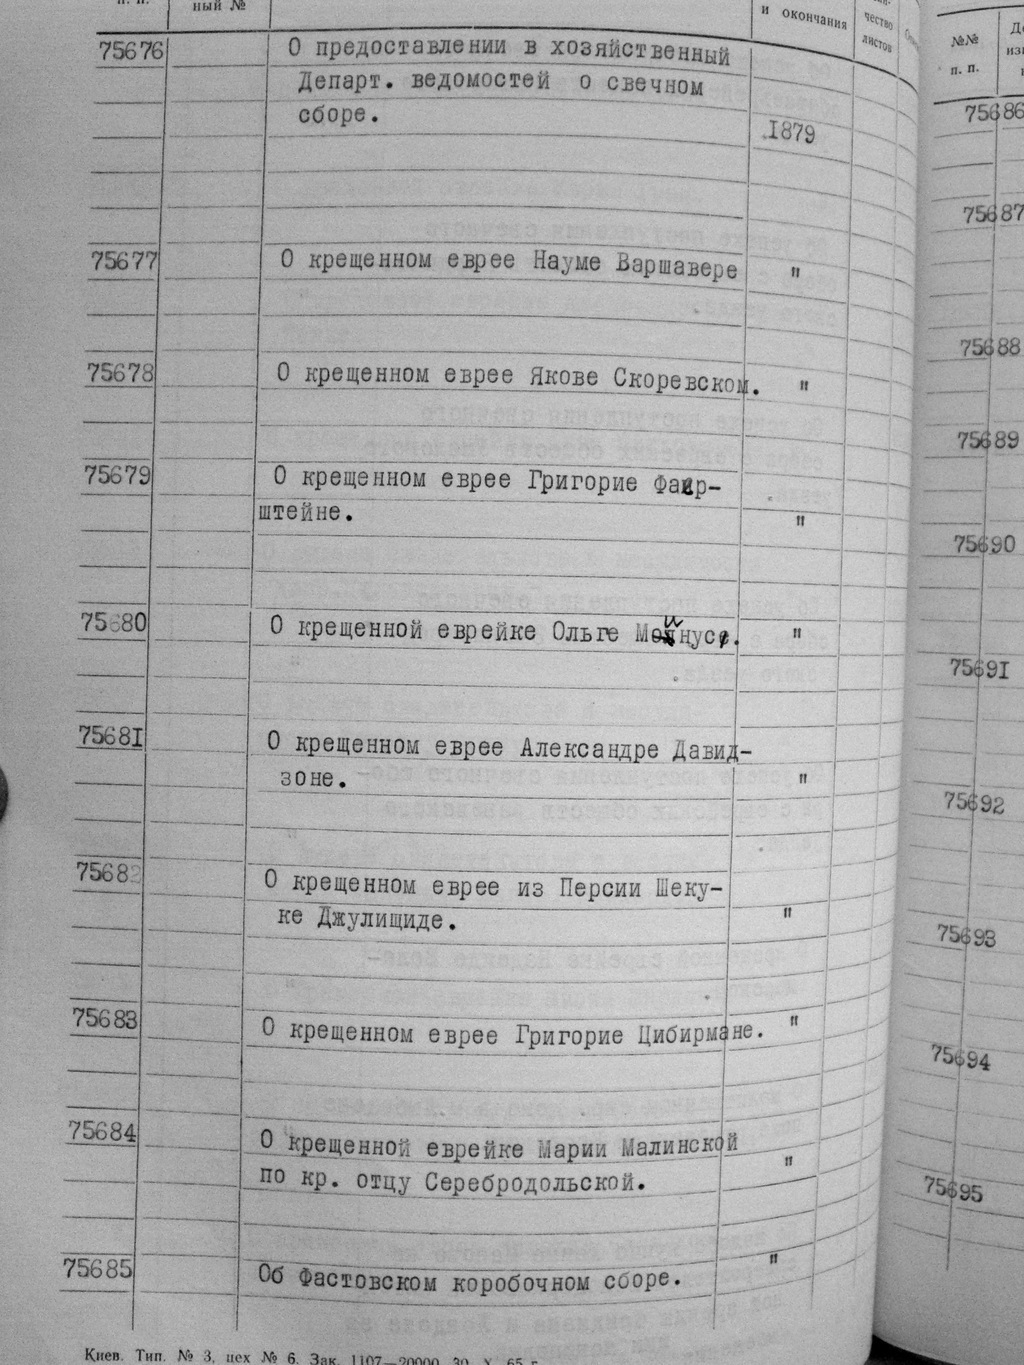 п. п.
ный №
и окончания
чество
листов
75676 О предоставлении в хозяйственный
Департ. ведомостей о свечном
сборе.
1879
75677 О крещенном еврее Науме Варшавере "
75678 О крещенном еврее Якове Скоревском. "
75679 О крещенном еврее Григорие Фаер-
штейне. "
75680 О крещенной еврейке Ольге Мейнус. "
75681 О крещенном еврее Александре Давид-
зоне. "
75682 О крещенном еврее из Персии Шеку-
ке Джулищиде. "
75683 О крещенном еврее Григорие Цибирмане. "
75684 О крещенной еврейке Марии Малинской
по кр. отцу Серебродольской. "
75685 Об Фастовском коробочном сборе. "
Киев. Тип. № 3, цех № 6. Зак. 1107—20000. 30. X. 65 г.
№№
п. п.
75686
75687
75688
75689
75690
75691
75692
75693
75694
75695